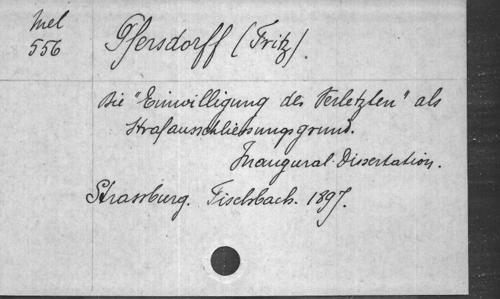 Mel
556
Pfersdorff (Fritz).
Die "Einwilligung des Verletzten" als
Strafausschliessungsgrund.
Inaugural-Dissertation.
Strassburg. Fischbach. 1897.